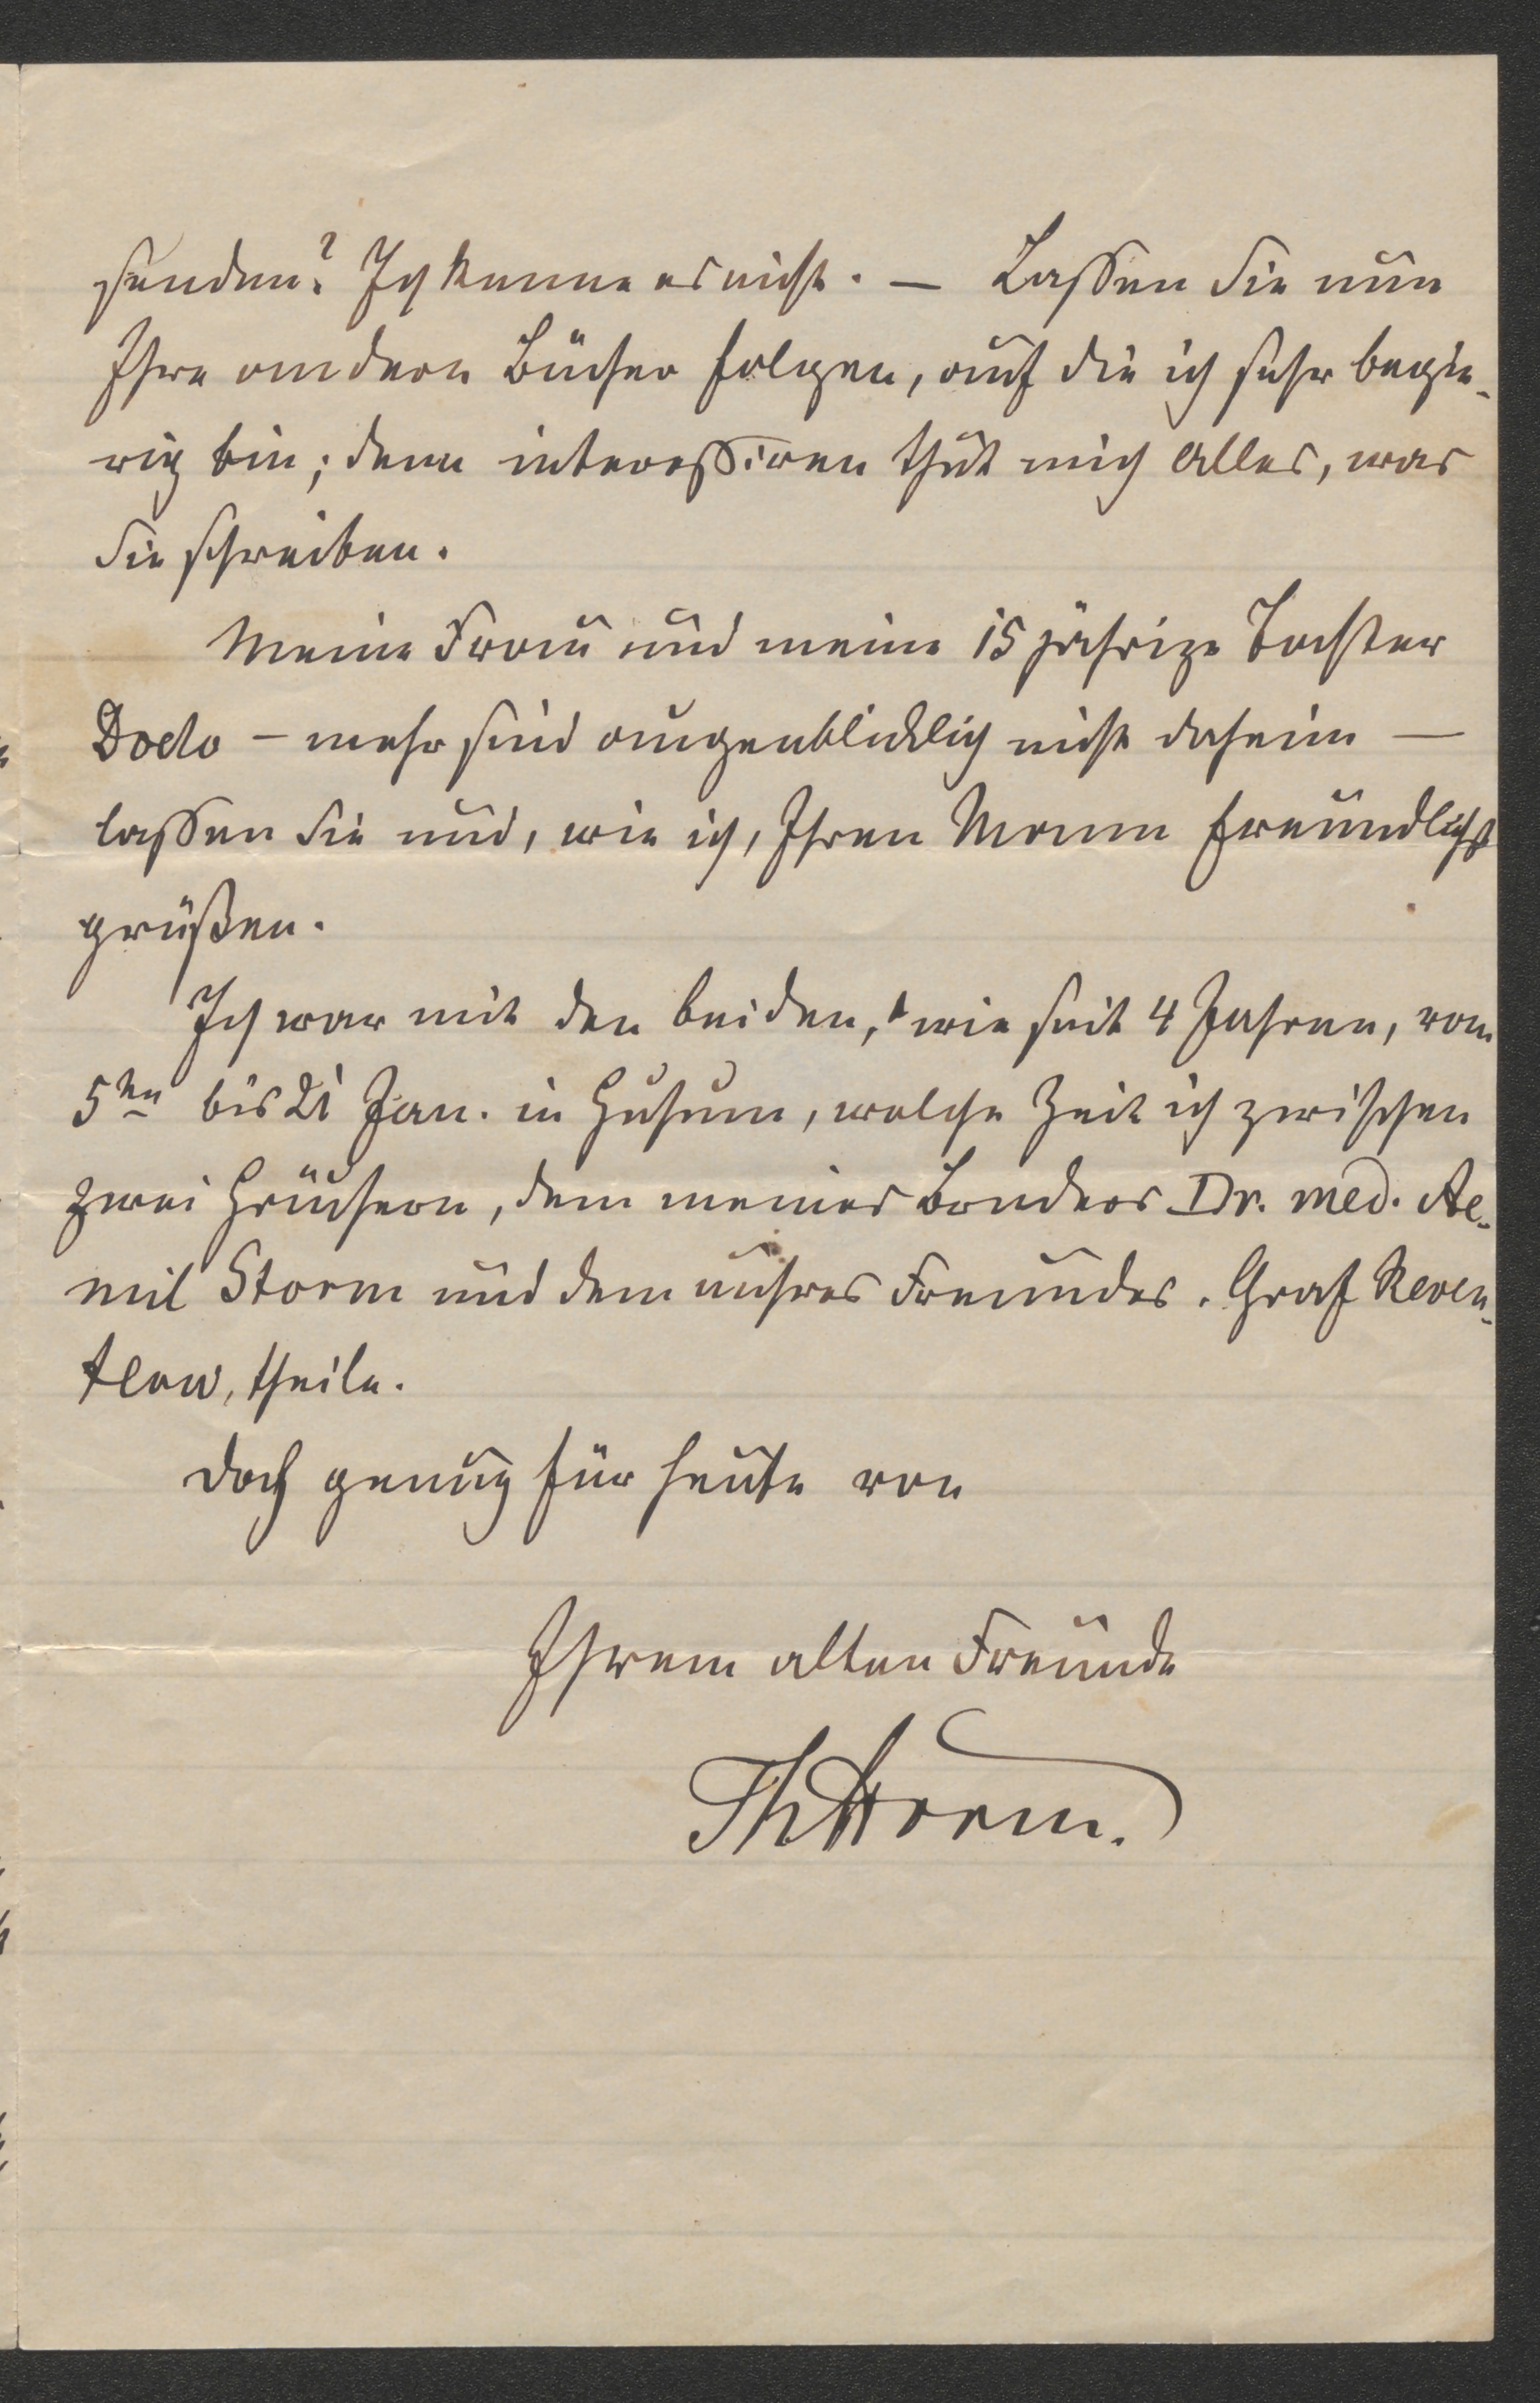 senden? Ich kenne es nicht. — Lassen Sie nun
Ihre andern Bücher folgen, auf die ich sehr begie-
rig bin; denn interessiren thut mich Alles, was
Sie schreiben.
Meine Frau und meine 15 jährige Tochter
Dodo – mehr sind augenblicklich nicht daheim —
lassen Sie und, wie ich, Ihren Mann freundlichst
grüßen.
Ich war mit den beiden, wie seit 4 Jahren, vom
5ten bis 21 Jan. in Husum, welche Zeit ich zwischen
zwei Häusern, dem meines Bruders Dr. med. Ae-
mil Storm und dem unsres Freundes. Graf Reven-
tlow, theile.
Doch genug für heute von
Ihrem alten Freunde
ThStorm.